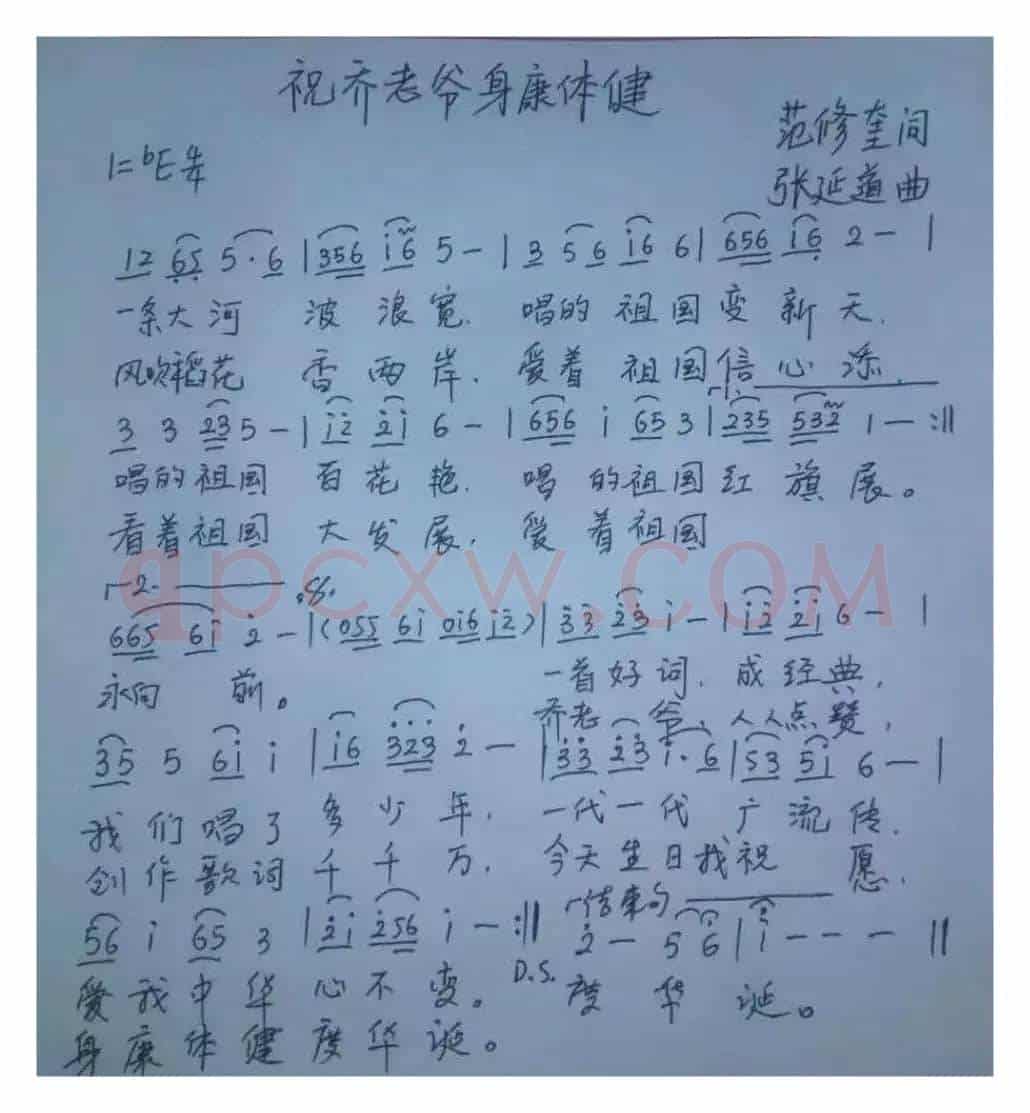 祝乔老爷身康体健
范修奎词
1=ᵇE 4/4
张延道曲
12 65 5·6 | 356 i6 5 - | 3 5 6 i6 6 | 656 i6 2 - |
一条大河 波浪宽. 唱的祖国变新天.
风吹稻花 香两岸. 爱着祖国信心添.
3 3 23 5 - | i2 2i 6 - | 656 i 65 3 | 1. 235 532 1 - :||
唱的祖国 百花艳. 唱的祖国红旗展。
看着祖国 大发展. 爱着祖国
qpcxw.COM
2.
665 6i 2 - | (055 6i 0i6 i2) | 33 23 i - | i2 2i 6 - |
永向 前。 一首好词. 成经典,
乔老爷, 人人点赞,
35 5 6i i | i6 323 2 - | 33 23 i·6 | 53 5i 6 - |
我们唱了多少年. 一代一代广流传.
创作歌词千千万. 今天生日我祝愿.
结束句
56 i 65 3 | 2i 256 i - :|| 2 - 5 6 | i - - - ||
D.S.
爱我中华心不变。 度华诞。
身康体健度华诞。